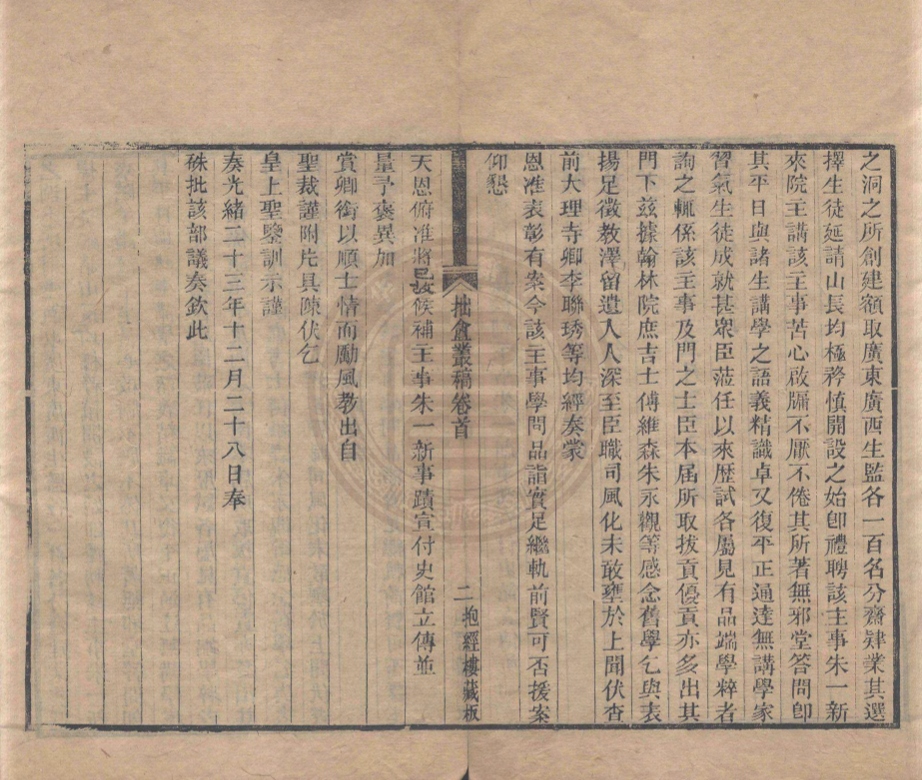 之洞之所創建額取廣東廣西生監各一百名分齋肄業其選
擇生徒延請山長均極矜慎開設之始卽禮聘該主事朱一新
來院主講該主事苦心啟牖不厭不倦其所著無邪堂答問卽
其平日與諸生講學之語義精識卓又復平正通達無講學家
習氣生徒成就甚衆臣蒞任以來歷試各屬見有品端學粹者
詢之輒係該主事及門之士臣本屆所取拔貢優貢亦多出其
門下茲據翰林院庶吉士傅維森朱永觀等感念舊學乞與表
揚足徵教澤留遺入人深至臣職司風化未敢壅於上聞伏查
前大理寺卿李聯琇等均經奏裳
恩准表彰有案今該主事學問品詣實足繼軌前賢可否援案
仰懇
拙盦叢稿卷首
二
抱經樓藏板
天恩俯准將已故候補主事朱一新事蹟宣付史館立傳並
量予褒異加
賞卿銜以順士情而勵風教出自
聖裁謹附片具陳伏乞
皇上聖鑒訓示謹
奏光緒二十三年十二月二十八日奉
硃批該部議奏欽此